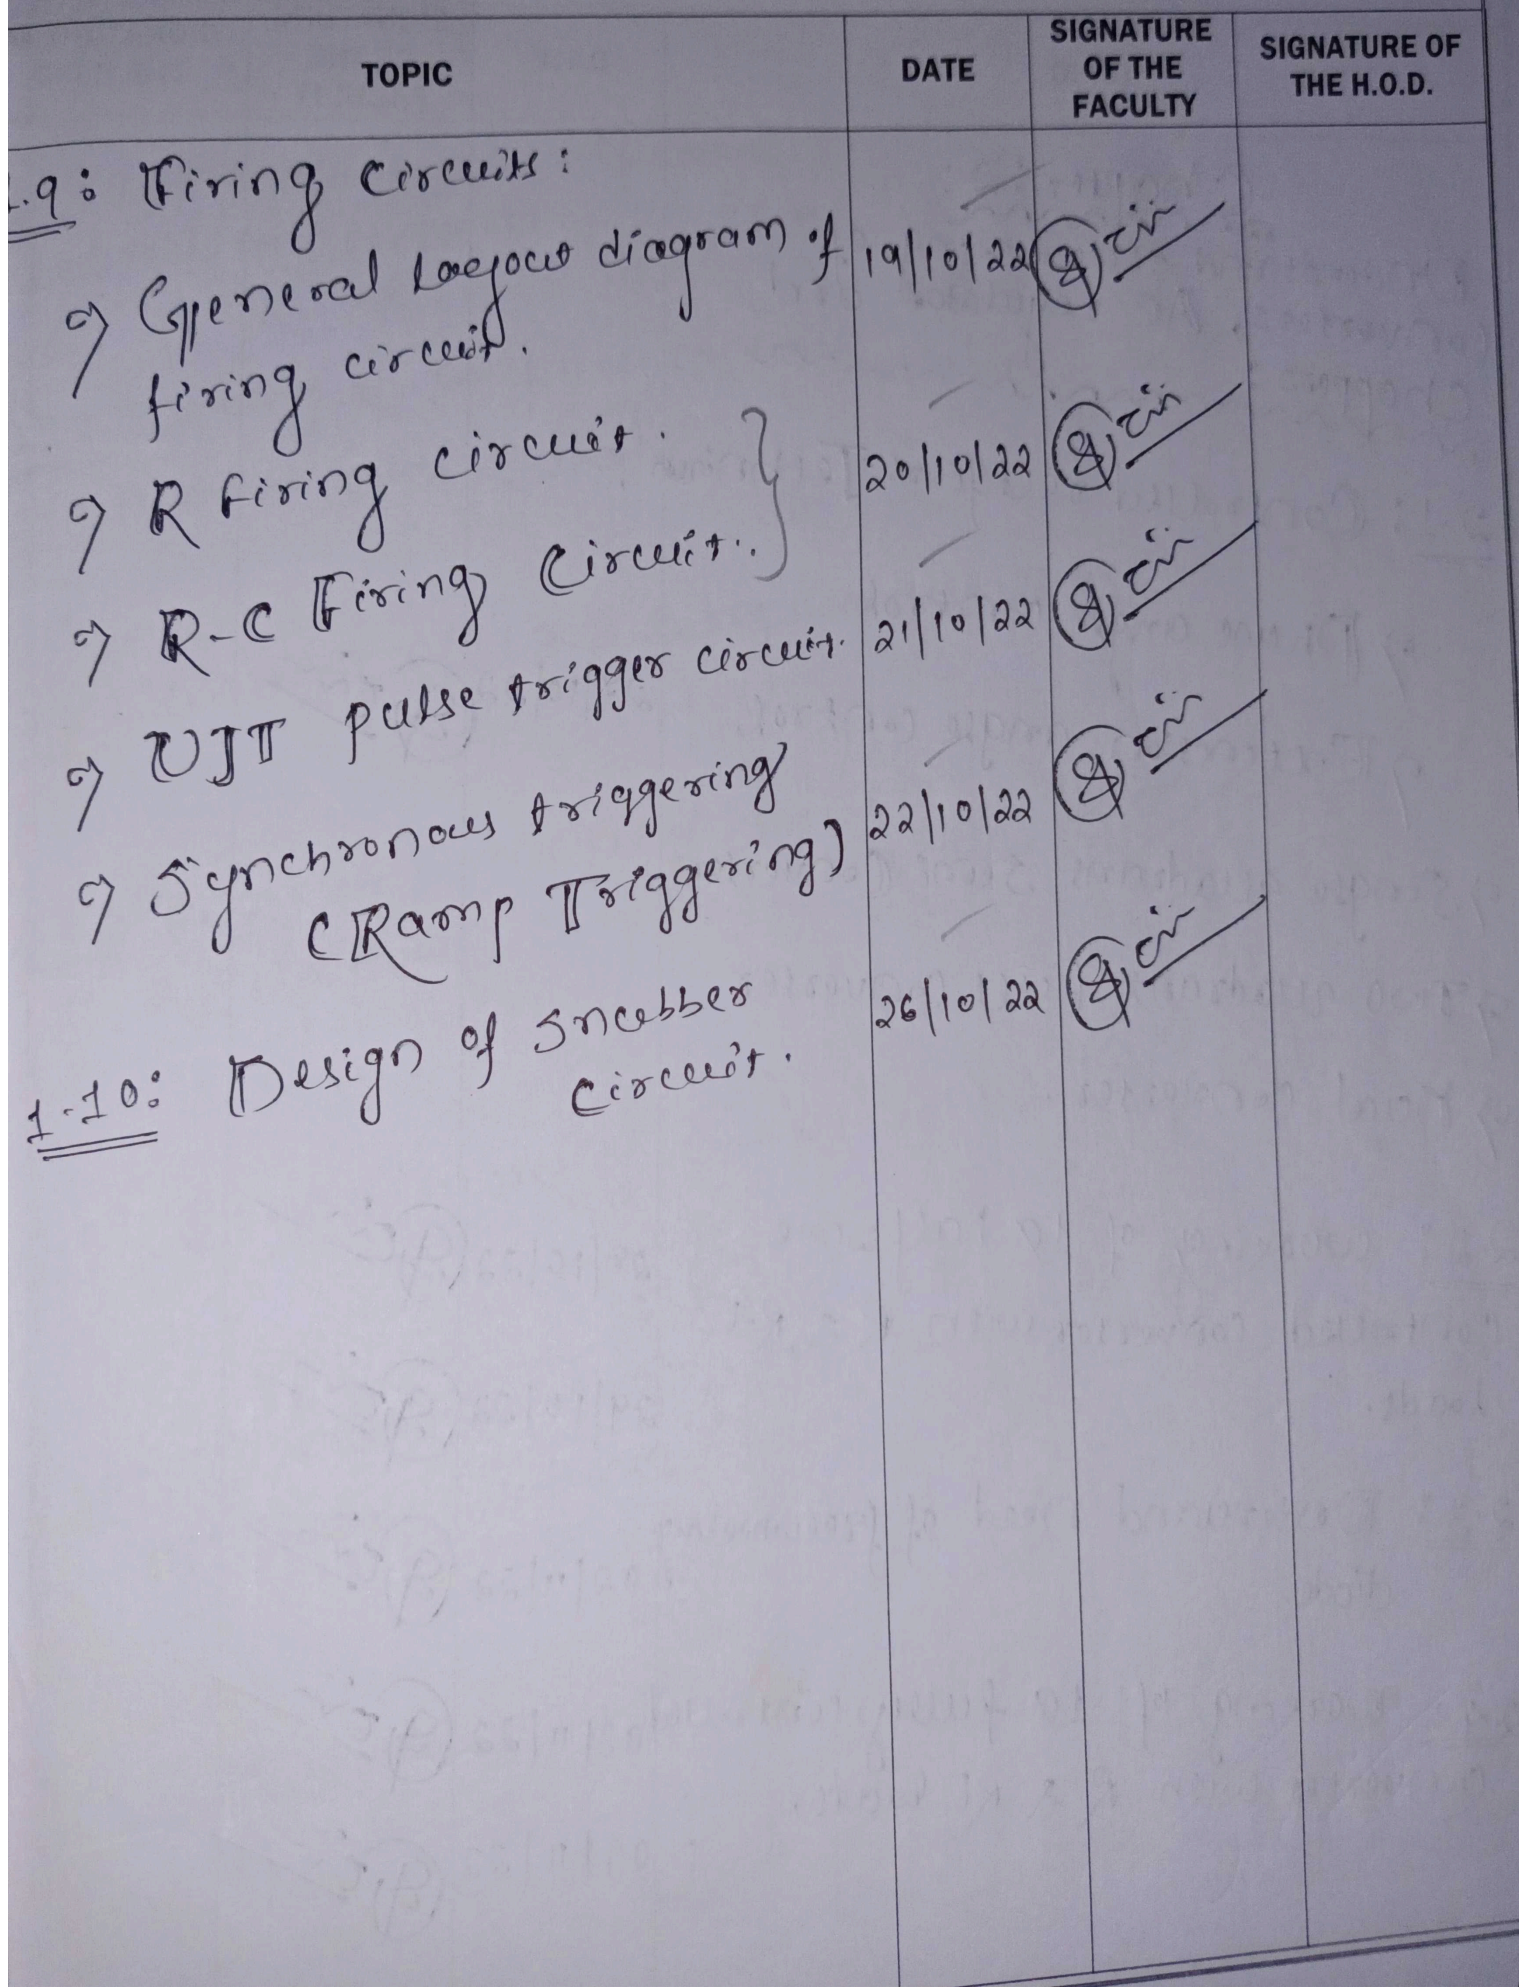 TOPIC
DATE
SIGNATURE
OF THE
FACULTY
SIGNATURE OF
THE H.O.D.
.9: Firing Circuits:
⇒ General Layout diagram of 19/10/22
firing circuit.
⇒ R firing circuit. } 20/10/22
⇒ R-C Firing Circuit.
⇒ UJT pulse trigger circuit. 21/10/22
⇒ Synchronous triggering 22/10/22
(Ramp Triggering)
1.10: Design of Snubber 26/10/22
circuit.